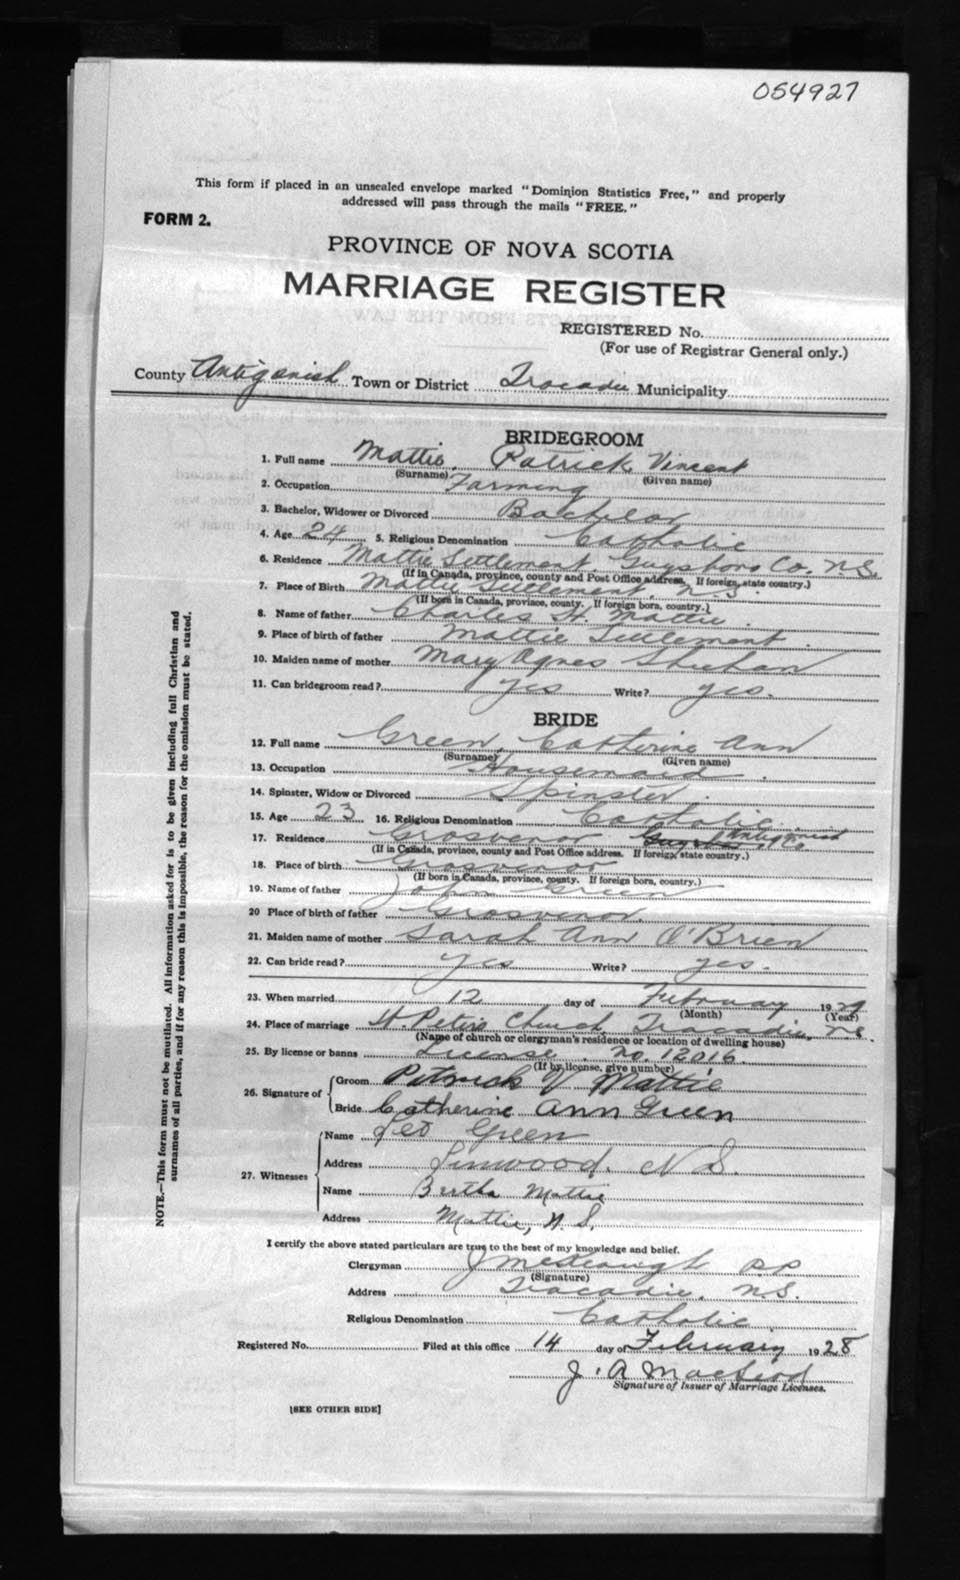 054927
This form if placed in an unsealed envelope marked "Dominion Statistics Free," and properly
addressed will pass through the mails "FREE."
FORM 2.
PROVINCE OF NOVA SCOTIA
MARRIAGE REGISTER
REGISTERED No.
(For use of Registrar General only.)
County Antigonish Town or District Tracadie Municipality
BRIDEGROOM
1. Full name Mattie, Patrick Vincent
(Surname) (Given name)
2. Occupation Farming
3. Bachelor, Widower or Divorced Bachelor
4. Age 24 5. Religious Denomination Catholic
6. Residence Mattie Settlement, Guysboro Co. N.S.
(If in Canada, province, county and Post Office address. If foreign, state country.)
7. Place of Birth Mattie Settlement, N.S.
(If born in Canada, province, county. If foreign born, country.)
8. Name of father Charles H. Mattie
9. Place of birth of father Mattie Settlement
10. Maiden name of mother Mary Agnes Sheehan
11. Can bridegroom read? yes Write? yes.
BRIDE
12. Full name Green, Catherine Ann
(Surname) (Given name)
13. Occupation Housemaid
14. Spinster, Widow or Divorced Spinster
15. Age 23 16. Religious Denomination Catholic
17. Residence Grosvenor Antigonish Co
(If in Canada, province, county and Post Office address. If foreign, state country.)
18. Place of birth Grosvenor
(If born in Canada, province, county. If foreign born, country.)
19. Name of father John Green
20 Place of birth of father Grosvenor
21. Maiden name of mother Sarah Ann O'Brien
22. Can bride read? yes Write? yes.
23. When married 12 day of February 19
(Month) (Year)
24. Place of marriage St. Peter's Church, Tracadie, N.S.
(Name of church or clergyman's residence or location of dwelling house)
25. By license or banns License. No. 12016.
(If by license, give number)
26. Signature of Groom Patrick V Mattie
Bride Catherine Ann Green
27. Witnesses Name Leo Green
Address Linwood. N S.
Name Bertha Mattie
Address Mattie, N. S.
I certify the above stated particulars are true to the best of my knowledge and belief.
Clergyman J McKeough P.P
(Signature)
Address Tracadie, N.S.
Religious Denomination Catholic
Registered No. Filed at this office 14 day of February 1928
J. A MacLeod
Signature of Issuer of Marriage Licenses.
[SEE OTHER SIDE]
NOTE.—This form must not be mutilated. All information asked for is to be given including full Christian and
surnames of all parties, and if for any reason this is impossible, the reason for the omission must be stated.